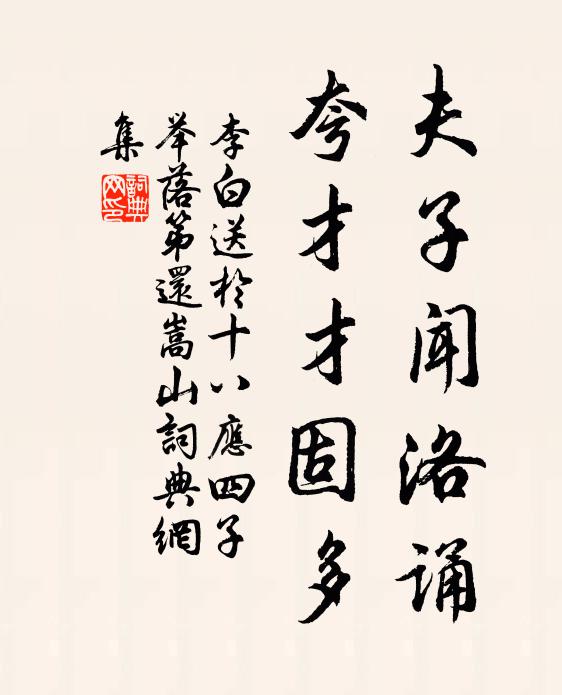 夫子闻洛诵
夸才才固多
李白送於十八應四子
举落第還嵩山詞典網
集
詞典网印